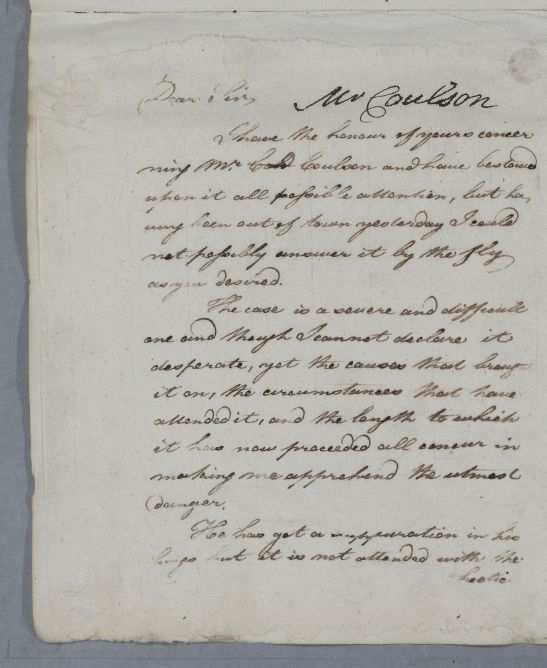 Dear Sir
Mr Coulson
I have the honour of yours concer
ning Mr. Coulson and have bestowed
upon it all possible attention, but ha,
ving been out of town yesterday I could
not possibly answer it by the fly
as you desired.
The case is a severe and difficult
one and though I cannot declare it
desperate, yet the causes that brougt
it on, the circumstances that have
attended it, and the length to which
it has now proceeded all concur in
making me apprehend the utmost
danger.
He has got a suppuration in his
lungs but it is not attended with the
hectic